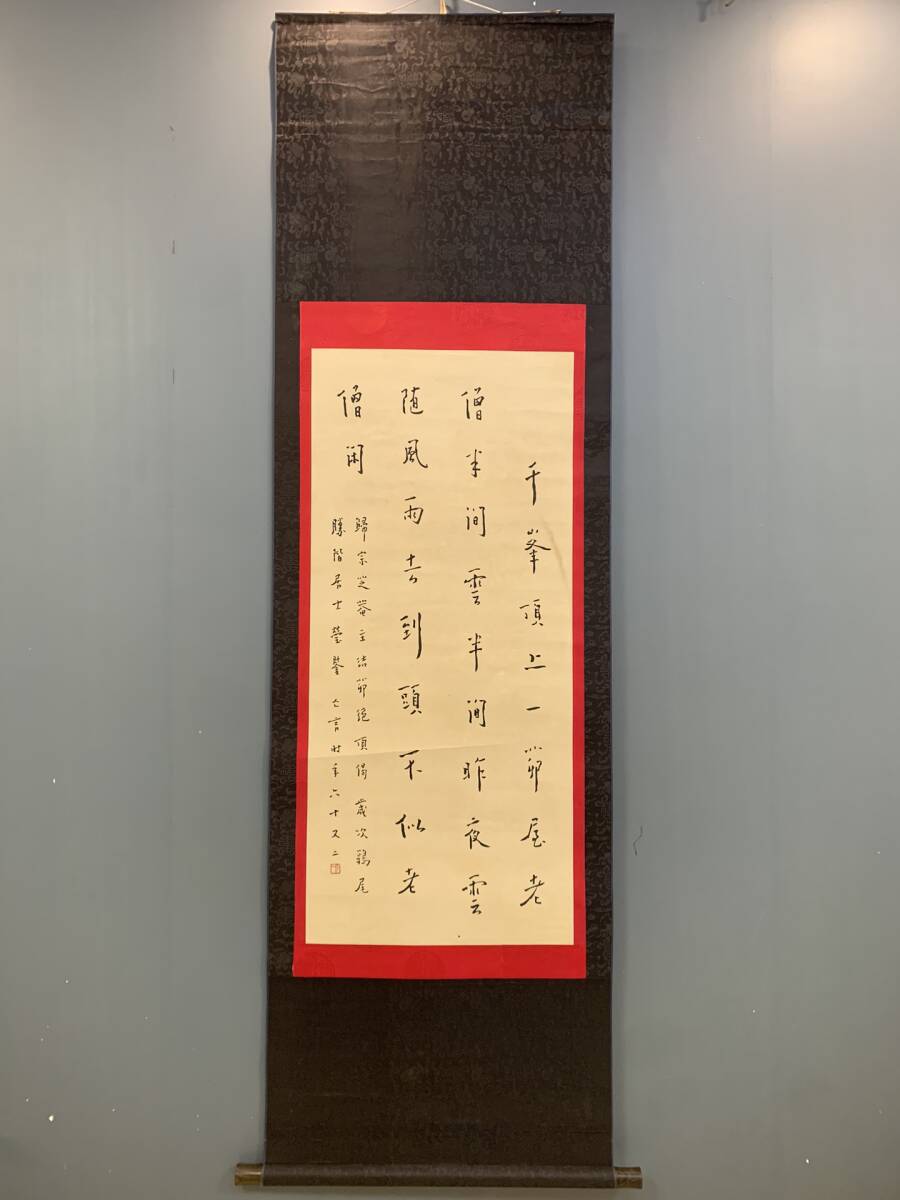 千峯頂上一茆屋老
僧半間雲半間昨夜雲
随風雨去到頭不似老
僧閑
歸宗芝菴主結茆絕頂偈 歲次鶏尾
勝階居士瑩鑒 亡言時年六十又二